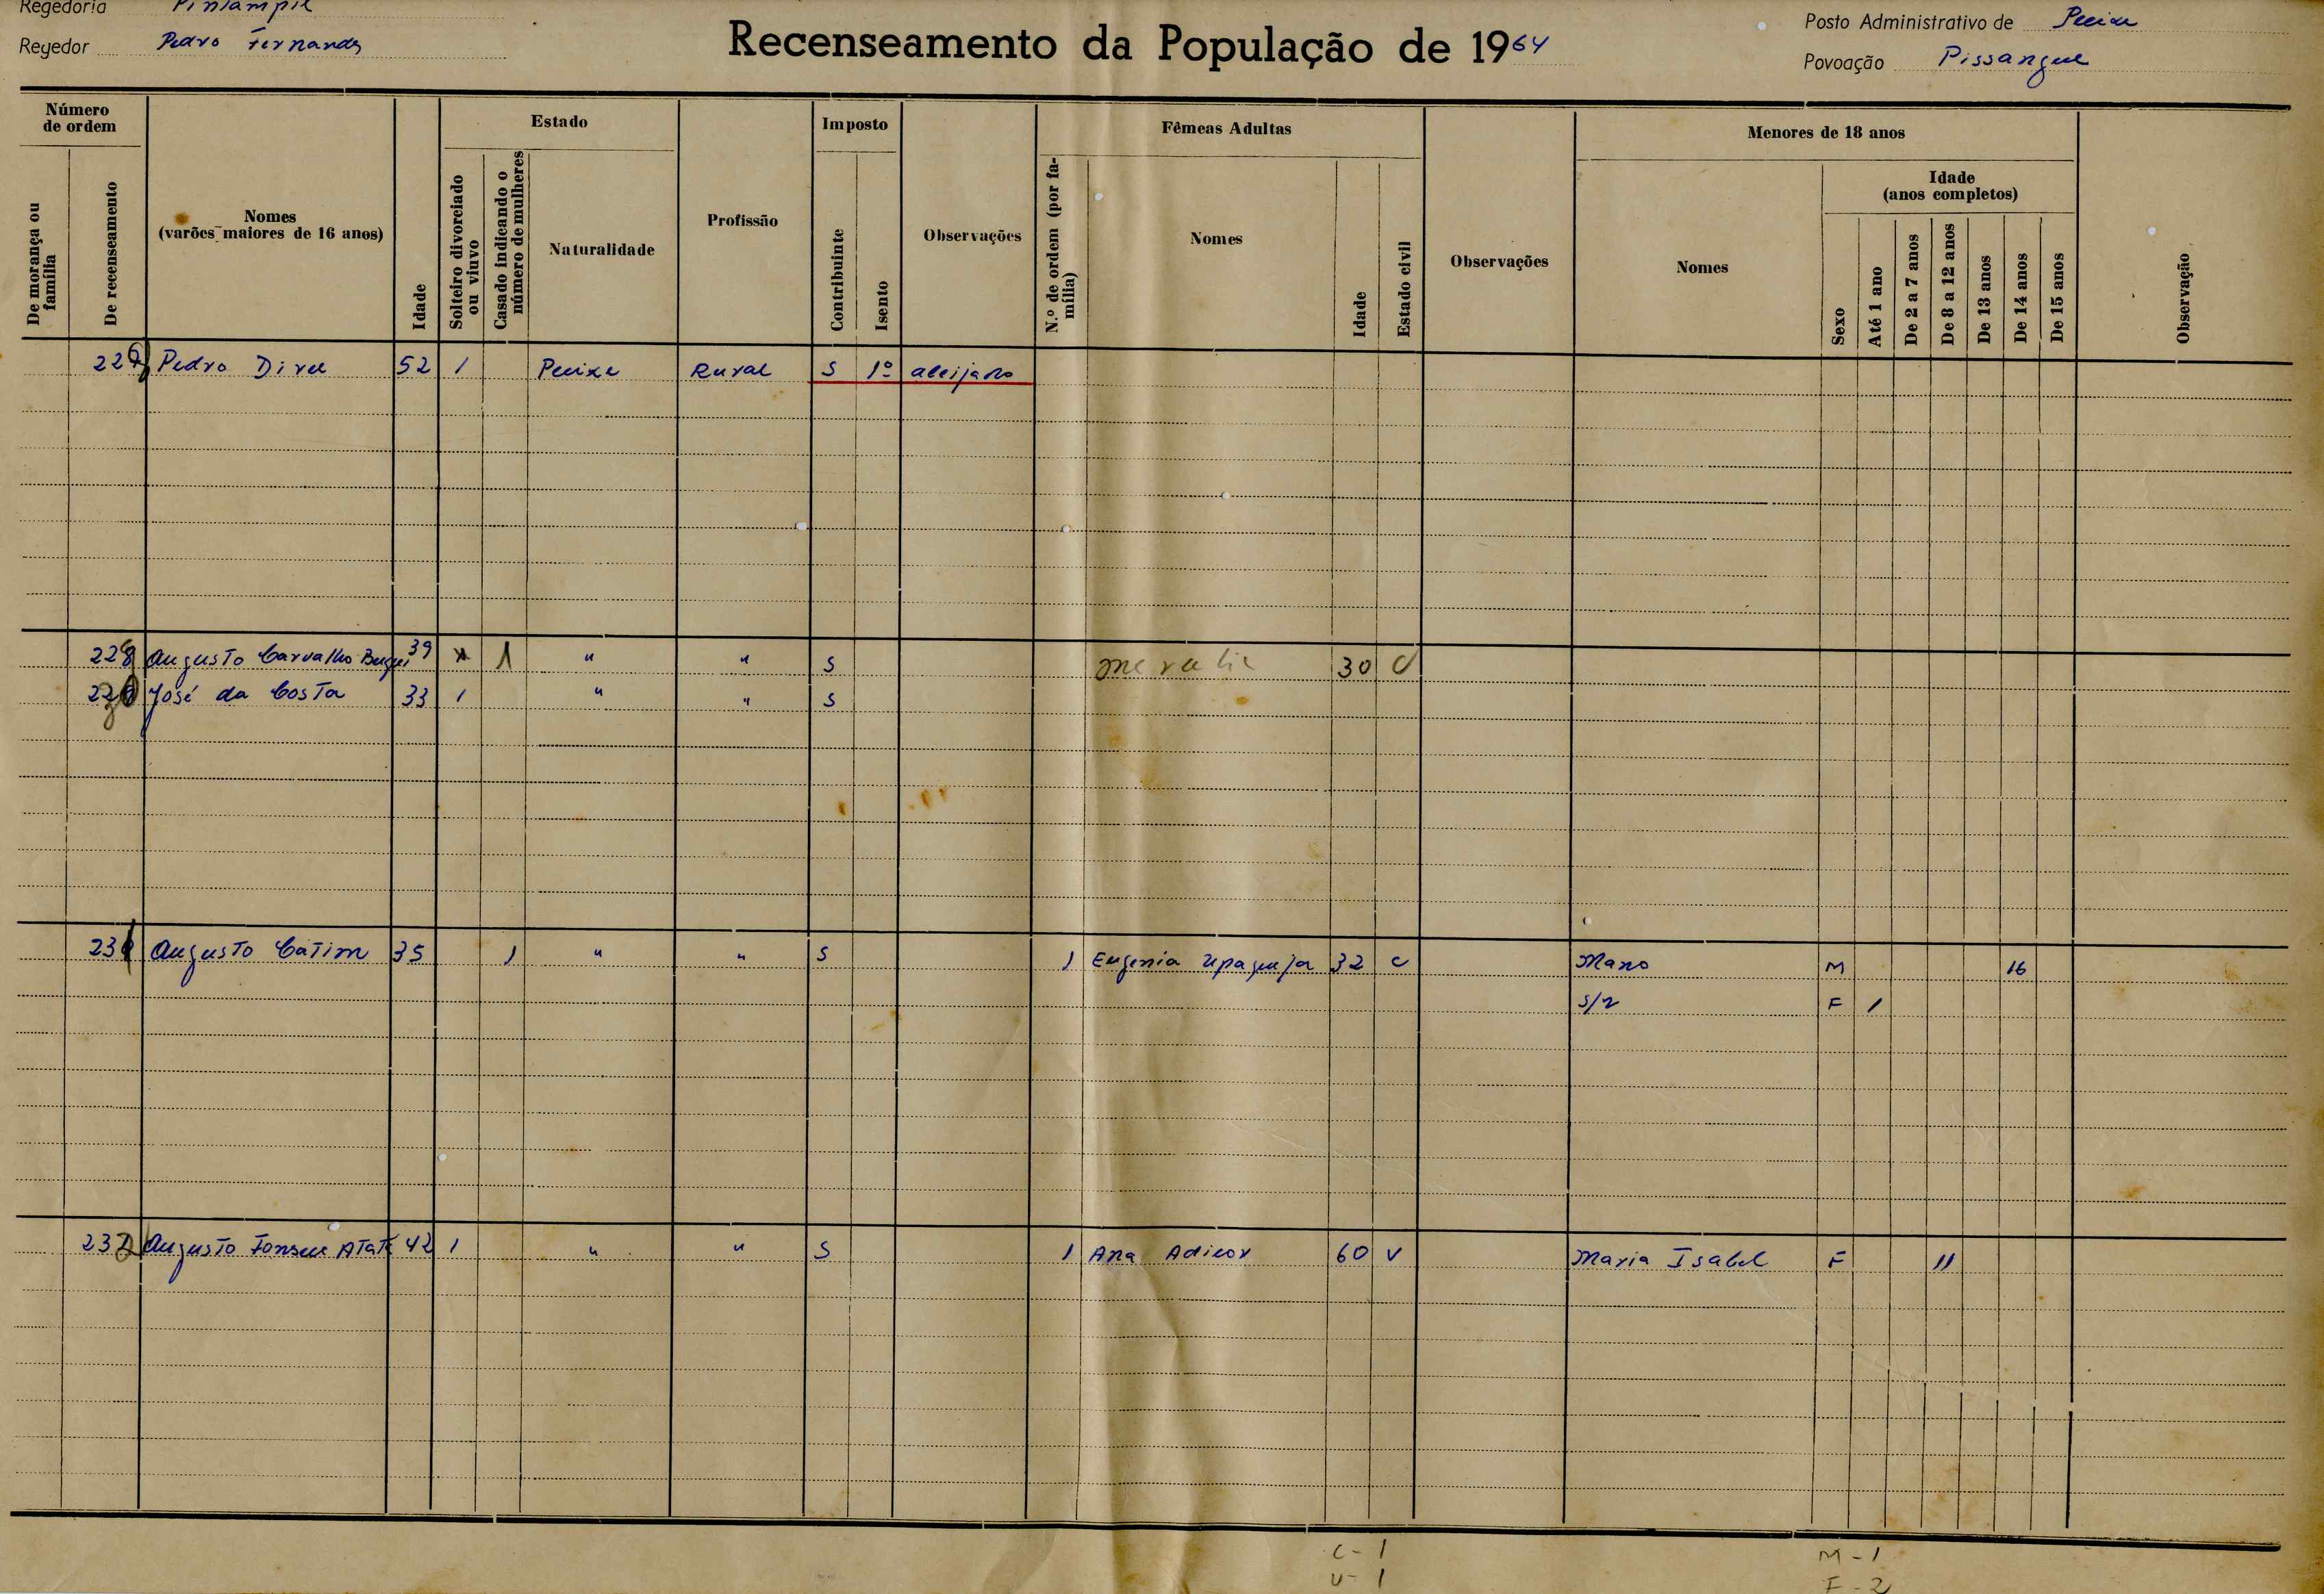 Regedoria
Regedor Pedro Fernandes
Recenseamento da População de 1964
Posto Administrativo de Pecixe
Povoação Pissangue
Número de ordem
De morança ou família
De recenseamento
Nomes
(varões maiores de 16 anos)
Idade
Estado
Solteiro divorciado ou viuvo
Casado indicando o número de mulheres
Naturalidade
Profissão
Imposto
Contribuinte
Isento
Observações
Fêmeas Adultas
N.º de ordem (por família)
Nomes
Idade
Estado civil
Observações
Menores de 18 anos
Nomes
Sexo
Idade
(anos completos)
Até 1 ano
De 2 a 7 anos
De 8 a 12 anos
De 13 anos
De 14 anos
De 15 anos
Observação
Pedro 52 1 Pecixe Rural S 1º aleijado
Augusto Carvalho 39 1 " " S 30 C
230 José da Costa 33 1 " " S
231 Augusto Catim 35 1 " " S 1 Eugenia 32 C Mano M 16
s/n F 1
232 Augusto Fonseca 42 1 " " S 1 Ana 60 V Maria Isabel F 11
C - 1
V - 1
M - 1
F - 2